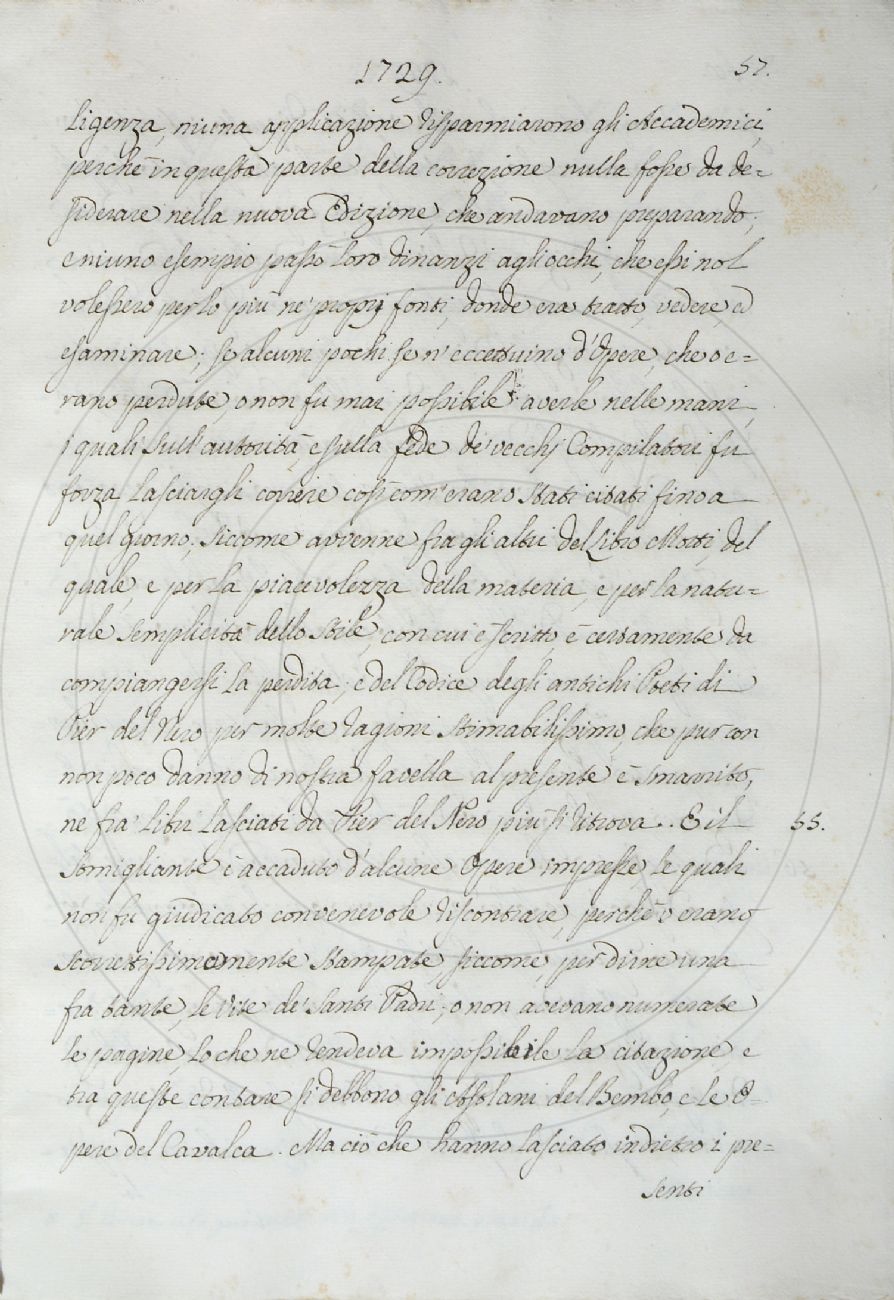 1729.
57.
ligenza, niuna applicazione risparmiarono gli Accademici,
perchè in questa parte della correzione nulla fosse da de=
siderare nella nuova Edizione, che andavano preparando;
e niuno esempio passò loro dinanzi agli occhi, che essi nol
volessero per lo più ne' proprj fonti, donde era tratto, vedere, ed
esaminare; se alcuni pochi se n'eccettuino d'Opere, che o e=
rano perdute, o non fu mai possibile averle nelle mani,
i quali sull'autorità, e sulla fede de' vecchj Compilatori fu
forza lasciargli correre così com'erano stati citati fino a
quel giorno; siccome avvenne fra gli altri del Libro Motti, del
quale, e per la piacevolezza della materia, e per la natu=
rale semplicità dello stile, con cui è scritto, è certamente da
compiangersi la perdita; e del Codice degli antichi Poeti di
Pier del Nero per molte ragioni stimabilissimo, che pur con
non poco danno di nostra favella al presente è smarrito,
ne fra' Libri lasciati da Pier del Nero più si ritrova. E il
55.
somigliante è accaduto d'alcune Opere impresse, le quali
non fu giudicato convenevole riscontrare, perchè o erano
scorrettissimamente stampate, siccome, per dirne una
fra tante, le Vite de' Santi Padri; o non avevano numerate
le pagine, lo che ne rendeva impossibile la citazione, e
tra queste contare si debbono gli Asolani del Bembo, e le O=
pere del Cavalca. Ma ciò che hanno lasciato indietro i pre=
senti